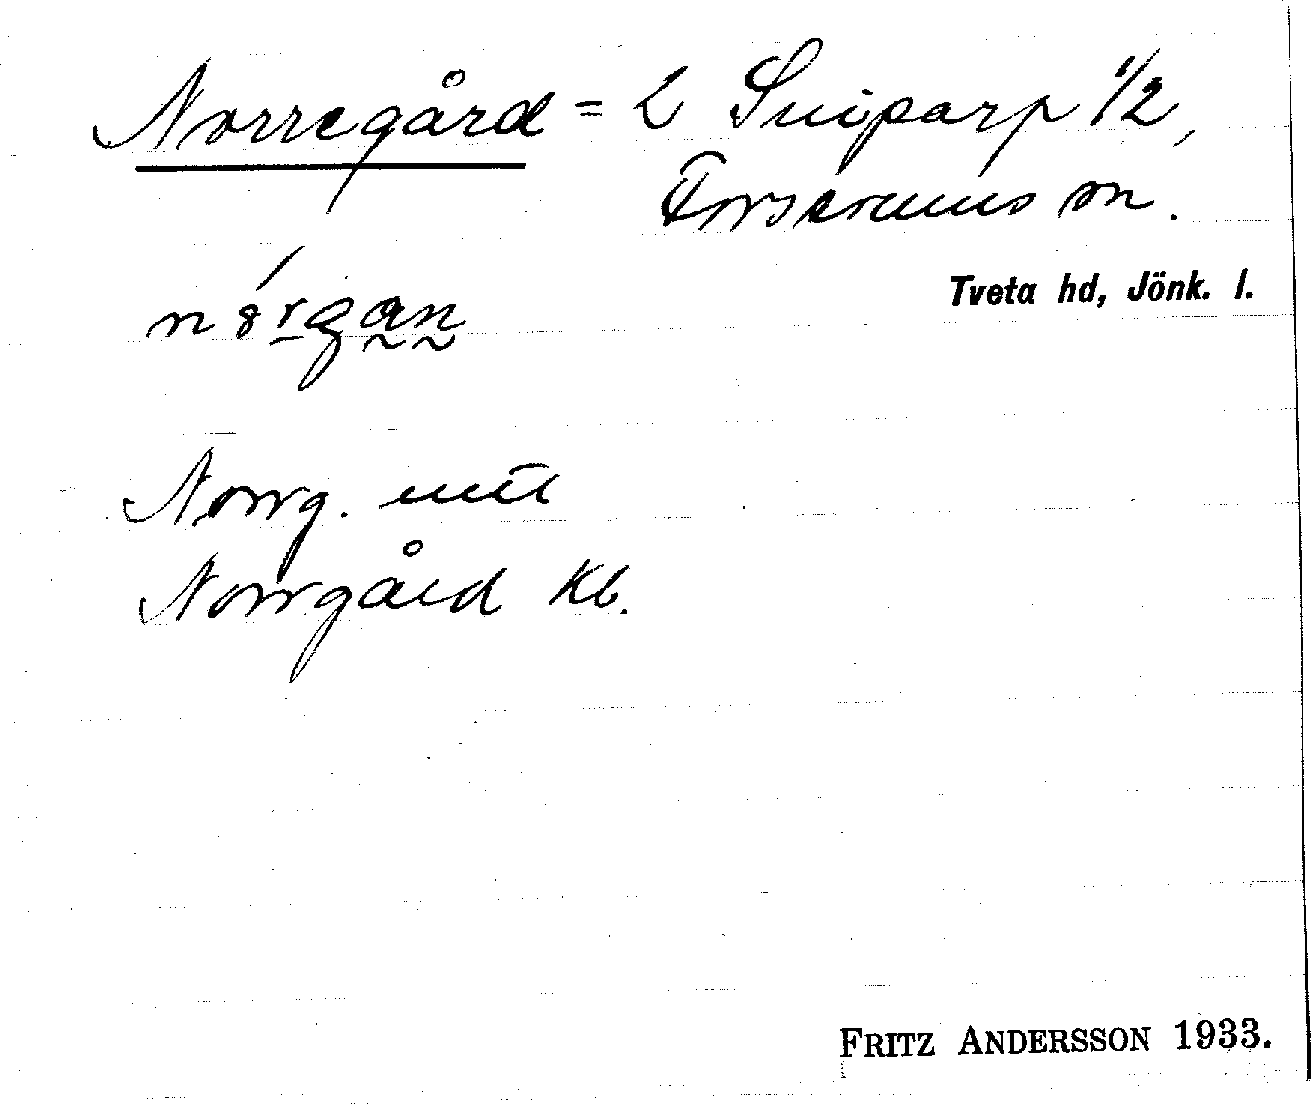 Norregård = L Sniparp 1/2,
Forserums sn.
Tveta hd, Jönk. l.
Norrg. mtl
Norrgård Kb.
FRITZ ANDERSSON 1933.